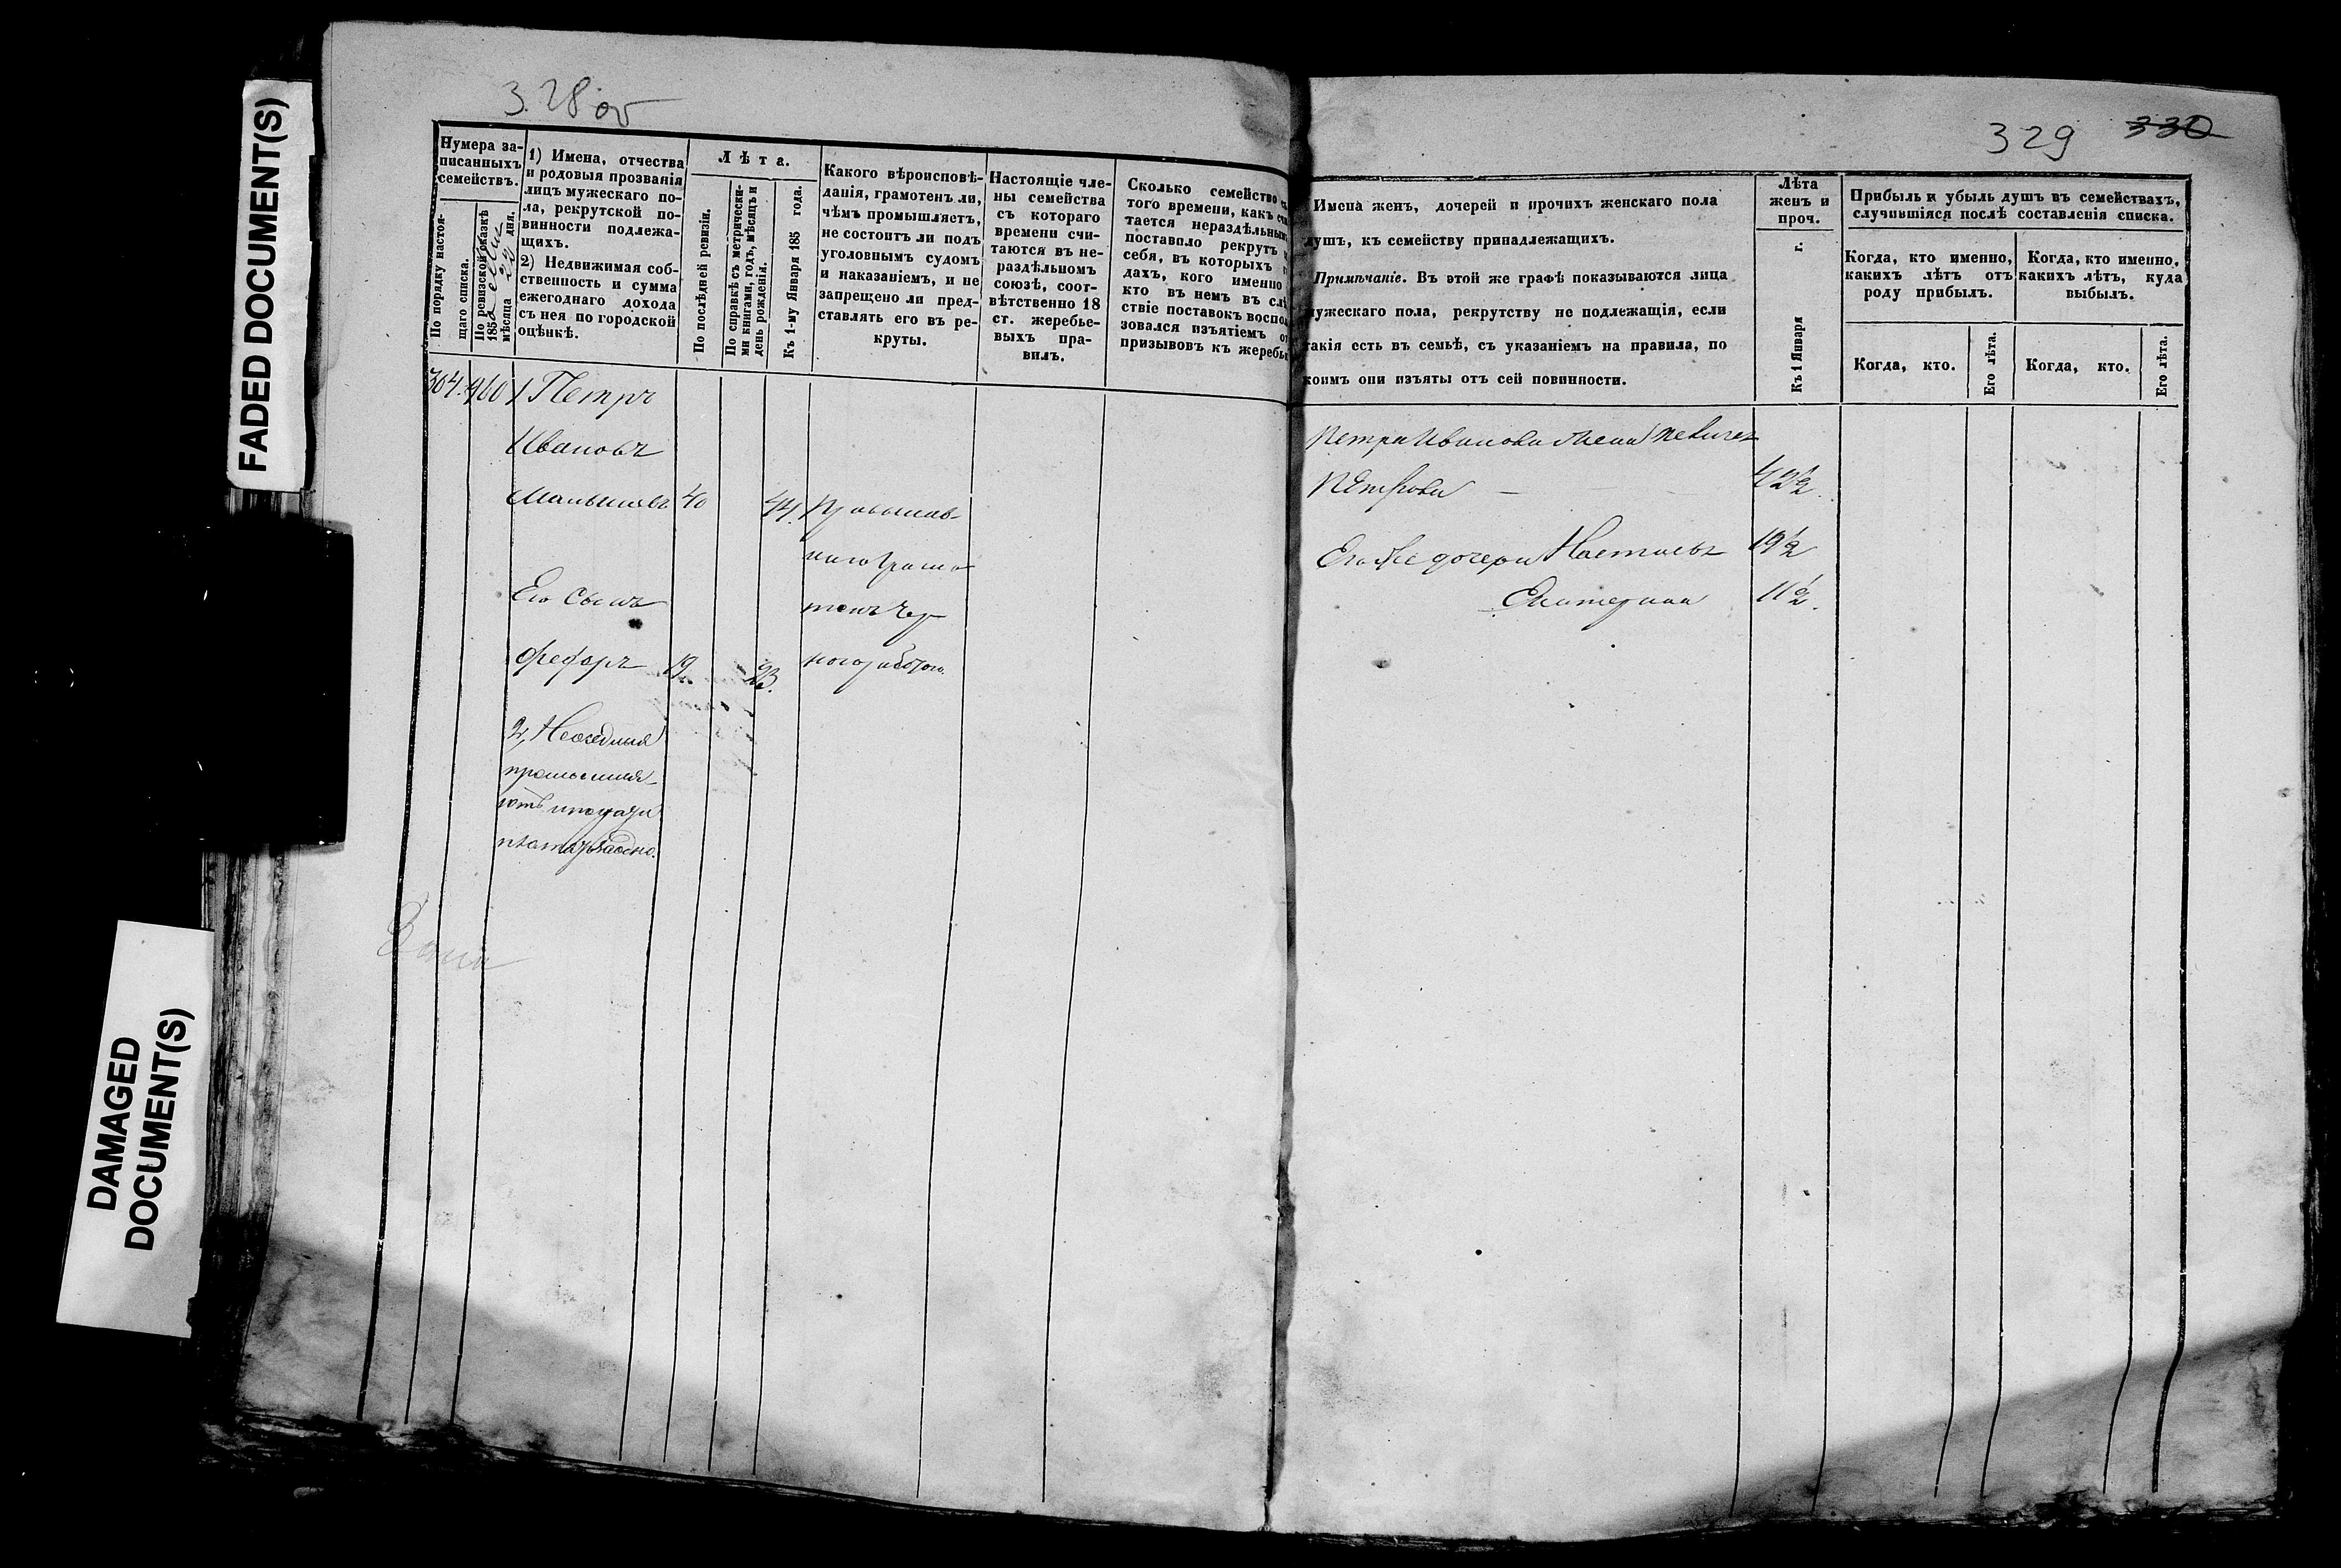 FADED DOCUMENT(S)
DAMAGED
DOCUMENT(S)
328 об
Нумера за-
писанныхъ
семействъ.
По порядку настоя-
щаго списка.
По ревизской сказкѣ
185
мѣсяца 22 дня.
1) Имена, отчества
и родовыя прозванія
лицъ мужескаго по-
ла, рекрутской по-
винности подлежа-
щихъ.
2) Недвижимая соб-
ственность и сумма
ежегоднаго дохода
съ нея по городской
оцѣнкѣ.
Лѣта.
По послѣдней ревизіи.
По справкѣ съ метрически-
ми книгами, годъ, мѣсяцъ и
день рожденія.
Къ 1-му Января 185 года.
Какого вѣроисповѣ-
данія, грамотенъ ли,
чѣмъ промышляетъ,
не состоитъ ли подъ
уголовнымъ судомъ
и наказаніемъ, и не
запрещено ли пред-
ставлять его въ ре-
круты.
Настоящіе чле-
ны семейства
съ котораго
времени счи-
таются въ не-
раздѣльномъ
союзѣ, соот-
вѣтственно 18
ст. жеребье-
выхъ пра-
вилъ.
Сколько семейство
того времени, какъ
тается нераздѣльнымъ
поставило рекрутъ
себя, въ которыхъ
дахъ, кого именно
кто въ немъ въ слѣ
ствіе поставокъ воспол
зовался изъятіемъ от
призывовъ къ жеребь
304. 460 1 Петръ
Ивановъ
40 44. Православ-
Его Сынъ
Федоръ 19 23.
329 330
Имена женъ, дочерей и прочихъ женскаго пола
душъ, къ семейству принадлежащихъ.
Примѣчаніе. Въ этой же графѣ показываются лица
мужескаго пола, рекрутству не подлежащія, если
такія есть въ семьѣ, съ указаніемъ на правила, по
коимъ они изъяты отъ сей повинности.
Лѣта
женъ и
проч.
Къ 1 Января г.
Прибыль и убыль душъ въ семействахъ,
случившіяся послѣ составленія списка.
Когда, кто именно,
какихъ лѣтъ отъ
роду прибылъ.
Когда, кто именно,
какихъ лѣтъ, куда
выбылъ.
Когда, кто.
Его лѣта.
Когда, кто.
Его лѣта.
Петра Иванова жена
Петрова 42½.
Его же дочери 19½
Екатерина 11½.